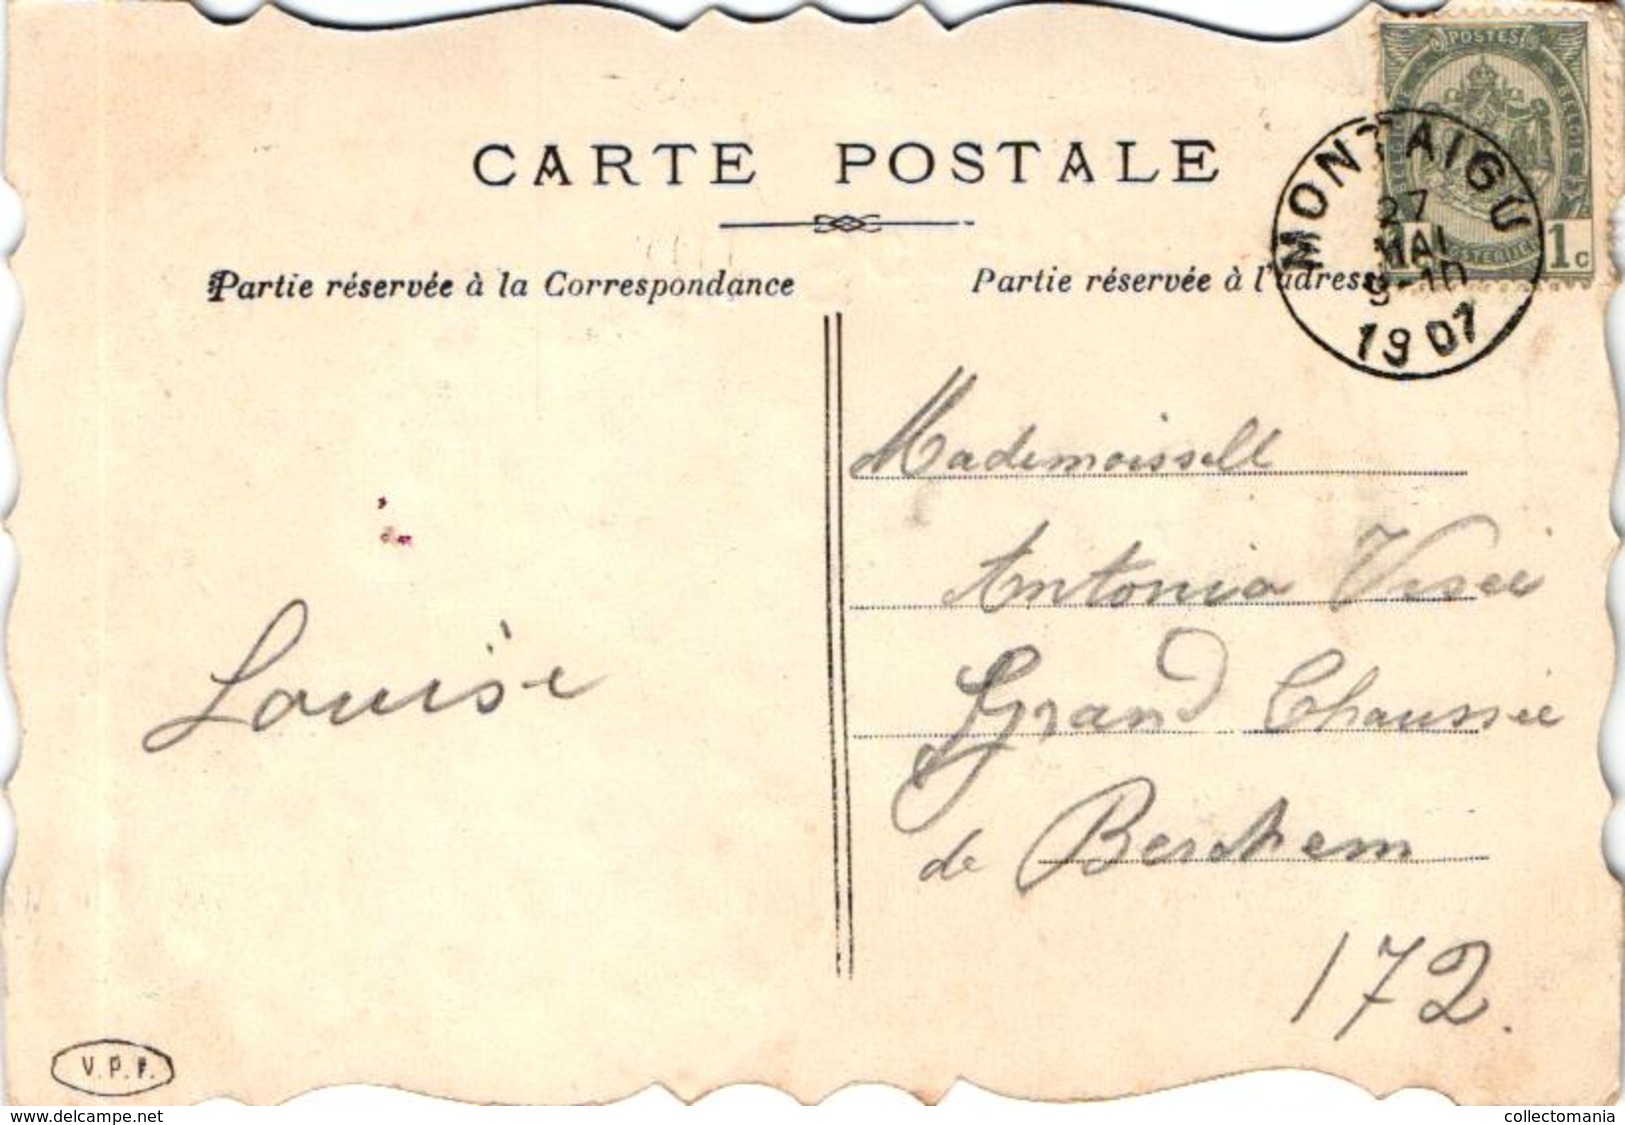 POSTES
BELGIE
1c
MONTAIGU
27
MAI
9-10
1907
CARTE POSTALE
Partie réservée à la Correspondance
Partie réservée à l'adress
Mademoisell
Antonia
Grand Chaussée
de Berchem
172.
Louise
V.P.F.
www.delcampe.net
collectomania